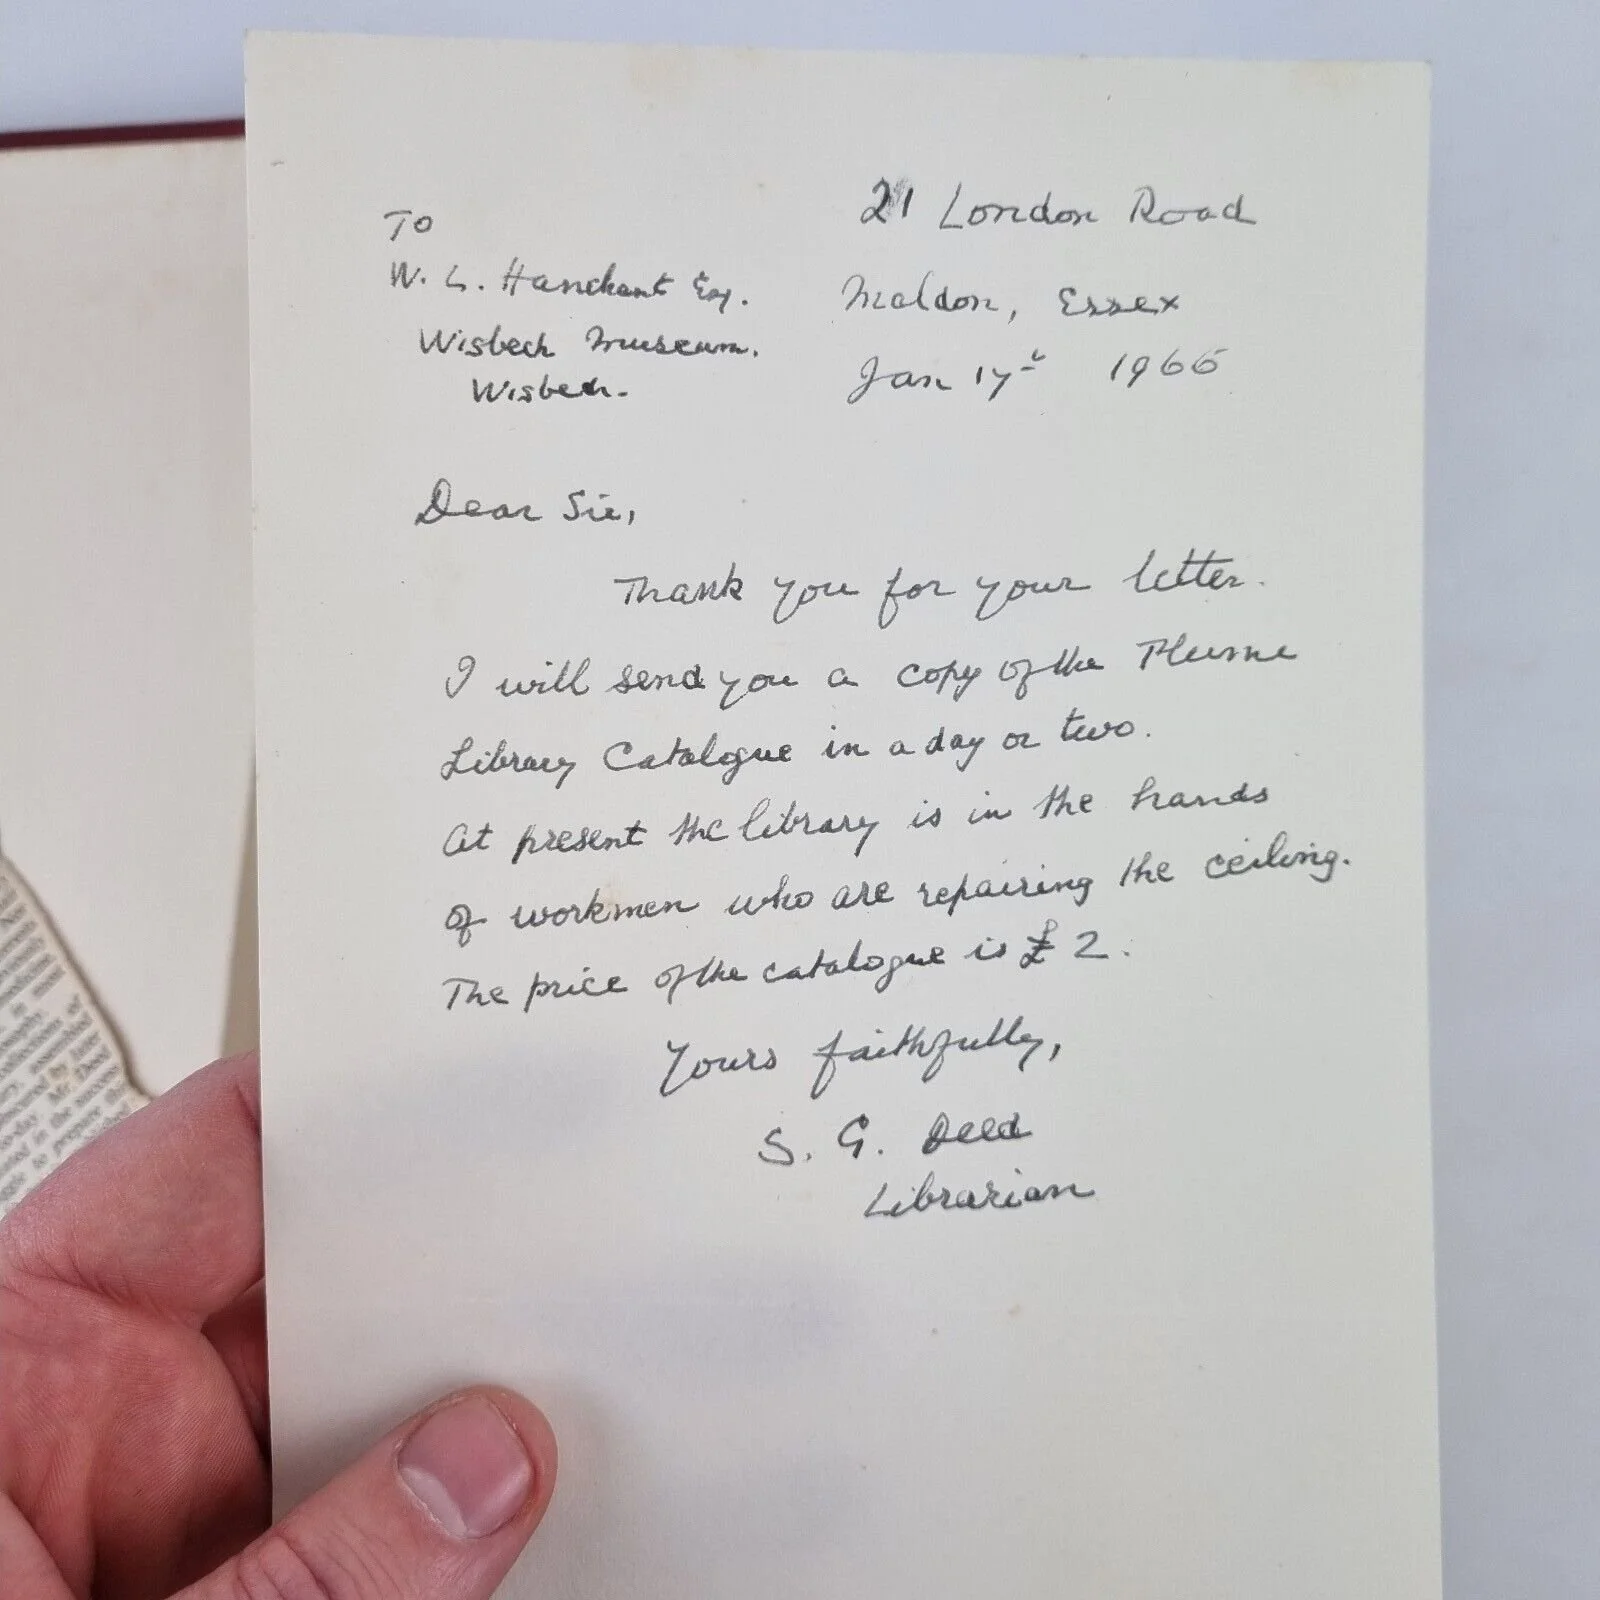 21 London Road
Maldon, Essex
Jan 17th 1966
To
W. L. Hanchant Esq.
Wisbech Museum.
Wisbech.
Dear Sir,
Thank you for your letter.
I will send you a copy of the Plume
Library Catalogue in a day or two.
At present the library is in the hands
of workmen who are repairing the ceiling.
The price of the catalogue is £2.
Yours faithfully,
S. G. Deed
Librarian